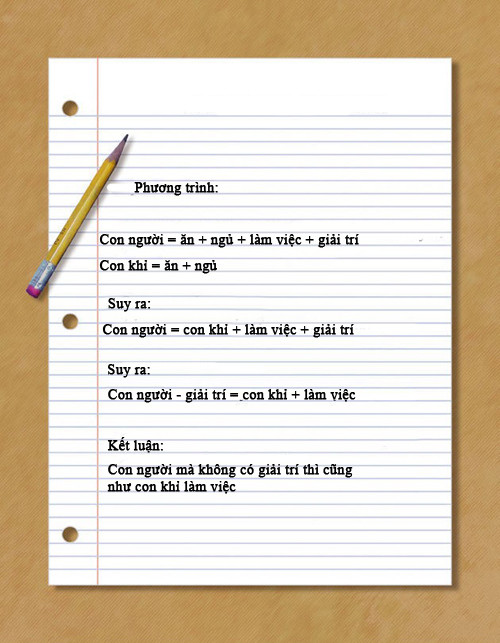 Phương trình:
Con người = ăn + ngủ + làm việc + giải trí
Con khỉ = ăn + ngủ
Suy ra:
Con người = con khỉ + làm việc + giải trí
Suy ra:
Con người - giải trí = con khỉ + làm việc
Kết luận:
Con người mà không có giải trí thì cũng
như con khỉ làm việc